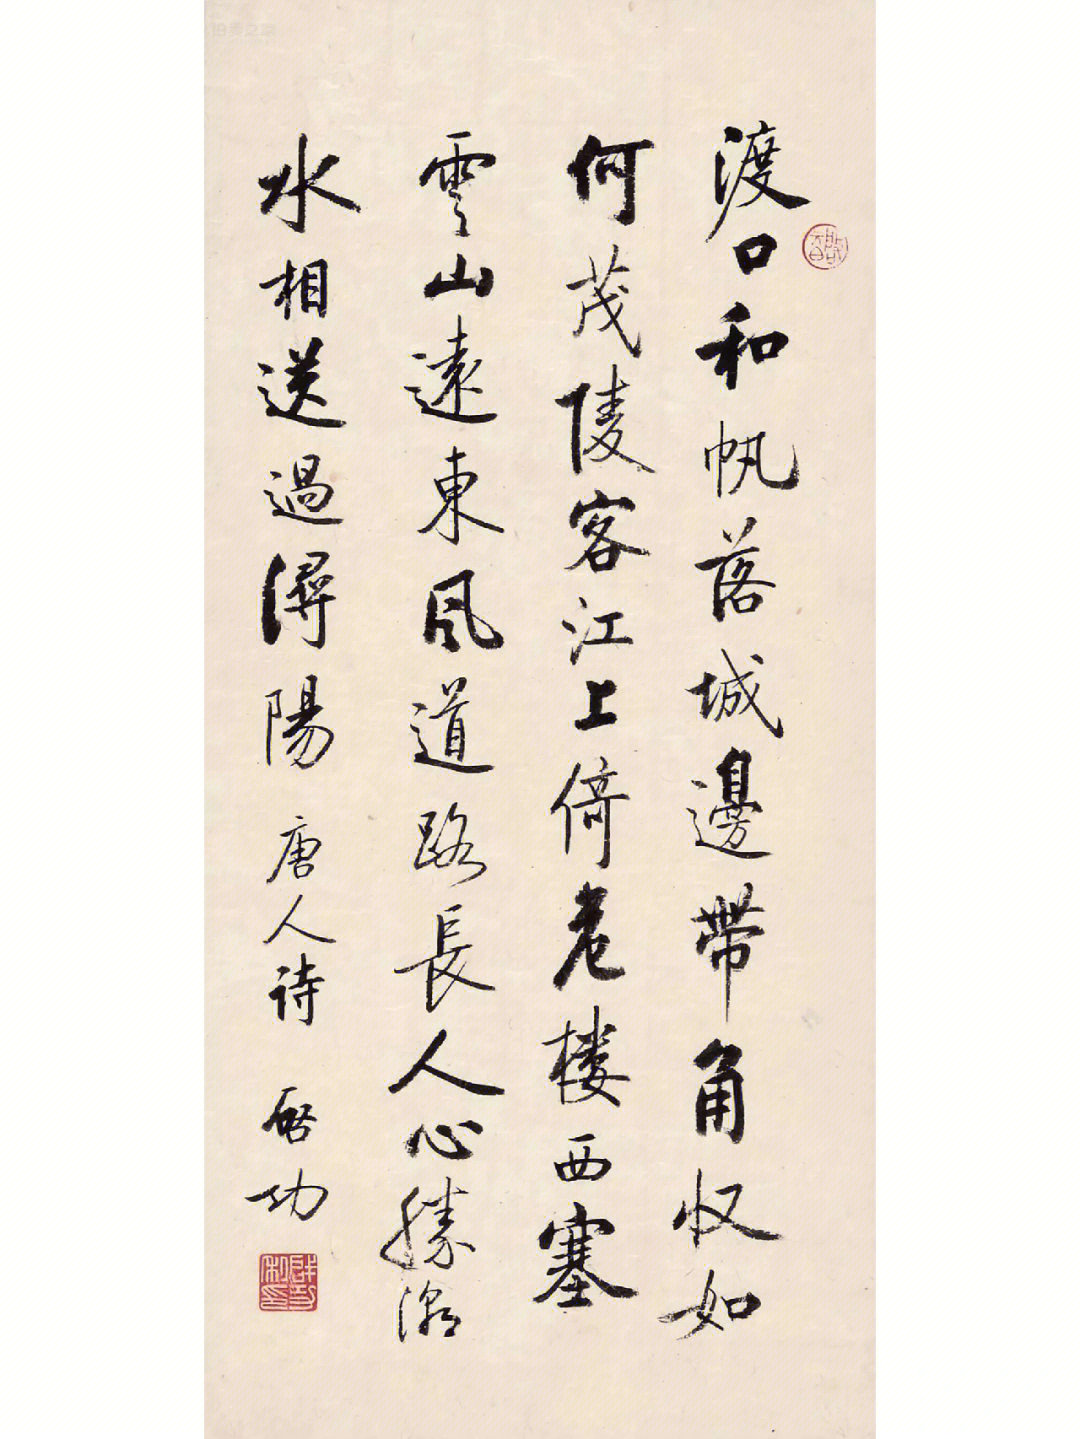 渡口和帆落城邊帶角収如
何茂陵客江上倚危楼西塞
雲山遠東風道路長人心勝潮
水相送過潯陽 唐人詩 啓功